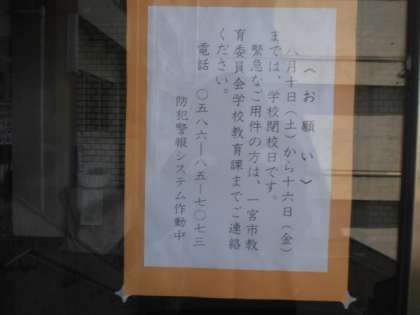 （お願い）
八月十日（土）から十六日（金）
までは、学校閉校日です。
緊急なご用件の方は、一宮市教
育委員会学校教育課までご連絡
ください。
電話　〇五八六ー八五ー七〇七三
防犯警報システム作動中